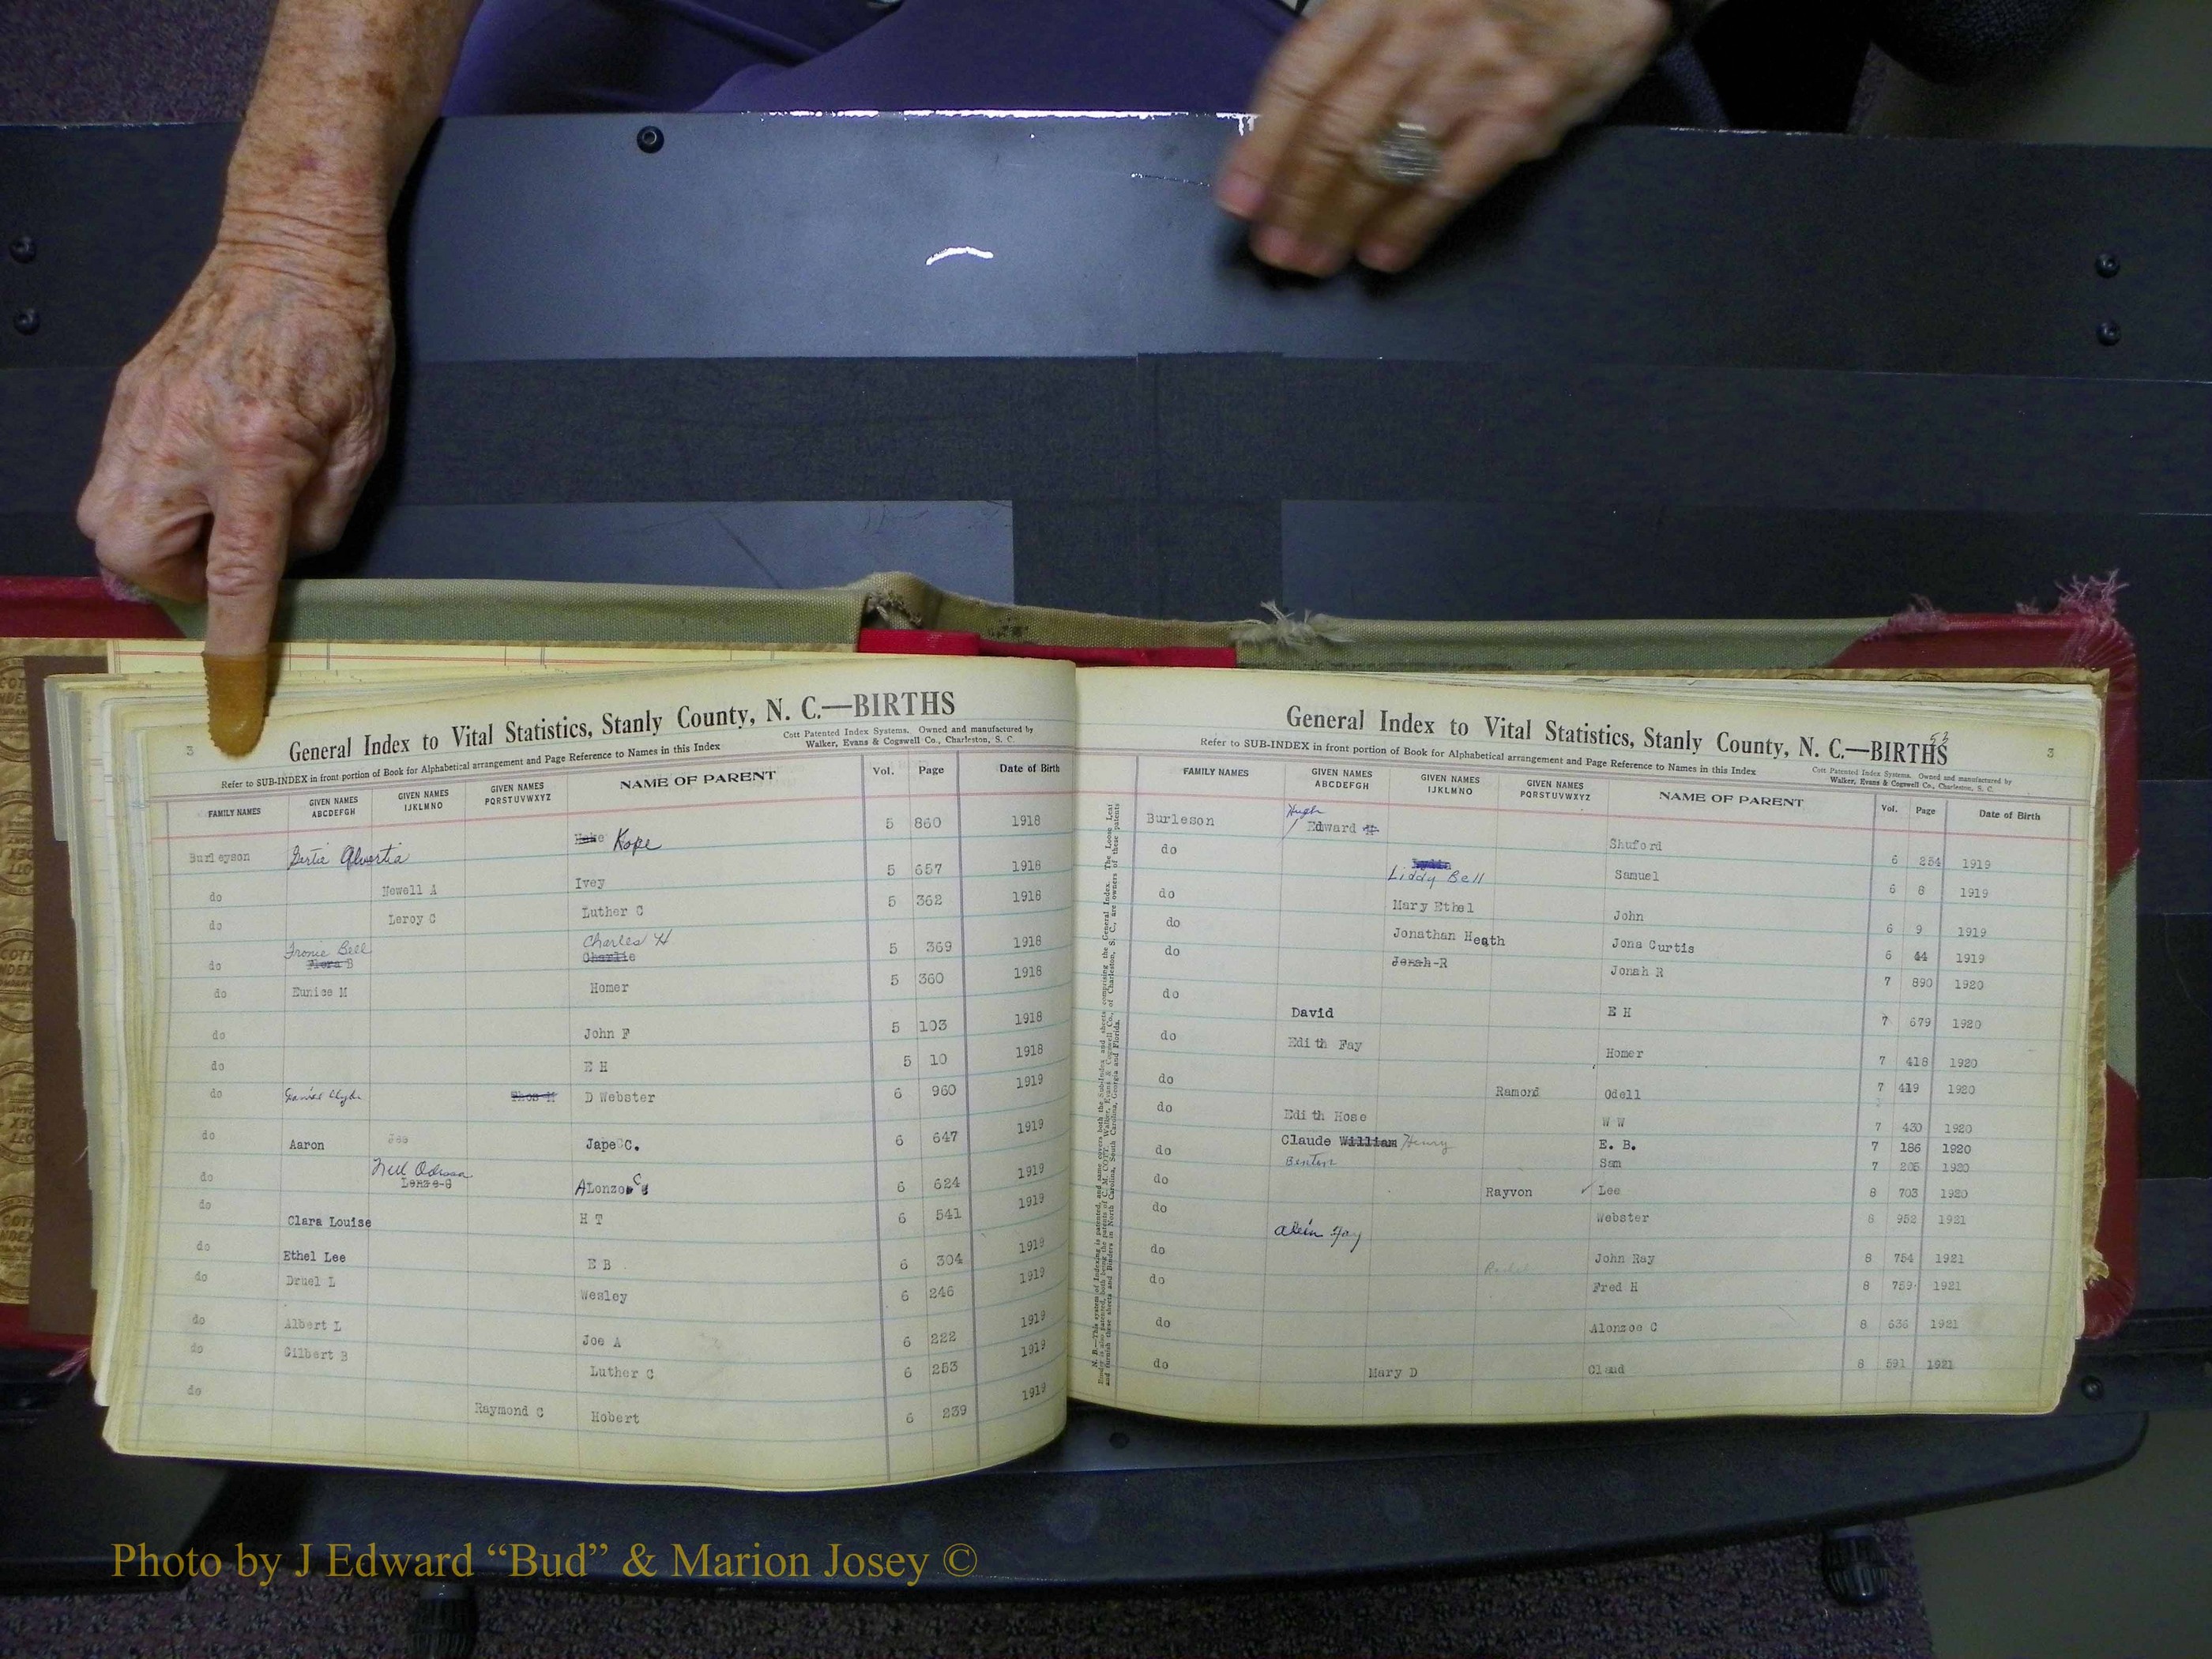 3
General Index to Vital Statistics, Stanly County, N. C.—BIRTHS
Refer to SUB-INDEX in front portion of Book for Alphabetical arrangement and Page Reference to Names in this Index
Cott Patented Index Systems. Owned and manufactured by
Walker, Evans & Cogswell Co., Charleston, S. C.
FAMILY NAMES GIVEN NAMES ABCDEFGH GIVEN NAMES IJKLMNO GIVEN NAMES PQRSTUVWXYZ NAME OF PARENT Vol. Page Date of Birth
Burleyson Gertie Alvertia Kope 5 860 1918
do Newell A Ivey 5 657 1918
do Leroy C Luther C 5 362 1918
Fronie Bell Charles H
do Flora B Charlie 5 369 1918
do Eunice M Homer 5 360 1918
do John F 5 103 1918
do E H 5 10 1918
do Thos M D Webster 6 960 1919
do Aaron Jape C. 6 647 1919
do Lonzo G Alonzo C 6 624 1919
do Clara Louise H T 6 541 1919
do Ethel Lee E B 6 304 1919
do Druel L Wesley 6 246 1919
do Albert L Joe A 6 222 1919
do Gilbert B Luther C 6 253 1919
do Raymond C Hobert 6 239 1919
General Index to Vital Statistics, Stanly County, N. C.—BIRTHS
53
3
Refer to SUB-INDEX in front portion of Book for Alphabetical arrangement and Page Reference to Names in this Index
Cott Patented Index Systems. Owned and manufactured by
Walker, Evans & Cogswell Co., Charleston, S. C.
FAMILY NAMES GIVEN NAMES ABCDEFGH GIVEN NAMES IJKLMNO GIVEN NAMES PQRSTUVWXYZ NAME OF PARENT Vol. Page Date of Birth
Hugh
Burleson Edward H Shuford 6 254 1919
do Liddy Bell Samuel 6 8 1919
do Mary Ethel John 6 9 1919
do Jonathan Heath Jona Curtis 6 44 1919
do Jonah R Jonah R 7 890 1920
do David E H 7 679 1920
do Edith Fay Homer 7 418 1920
do Ramond Odell 7 419 1920
do Edith Hose W W 7 430 1920
Claude William Henry E. B. 7 186 1920
do Benton Sam 7 205 1920
do Rayvon Lee 8 703 1920
do Webster 8 952 1921
do John Ray 8 754 1921
do Fred H 8 759 1921
do Alonzoe C 8 636 1921
do Mary D Claud 8 591 1921
Photo by J Edward “Bud” & Marion Josey ©